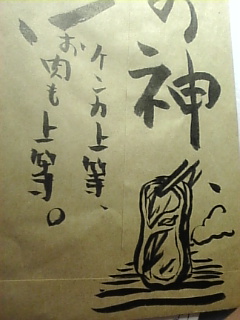 の神
ケンカ上等、
お肉も上等。